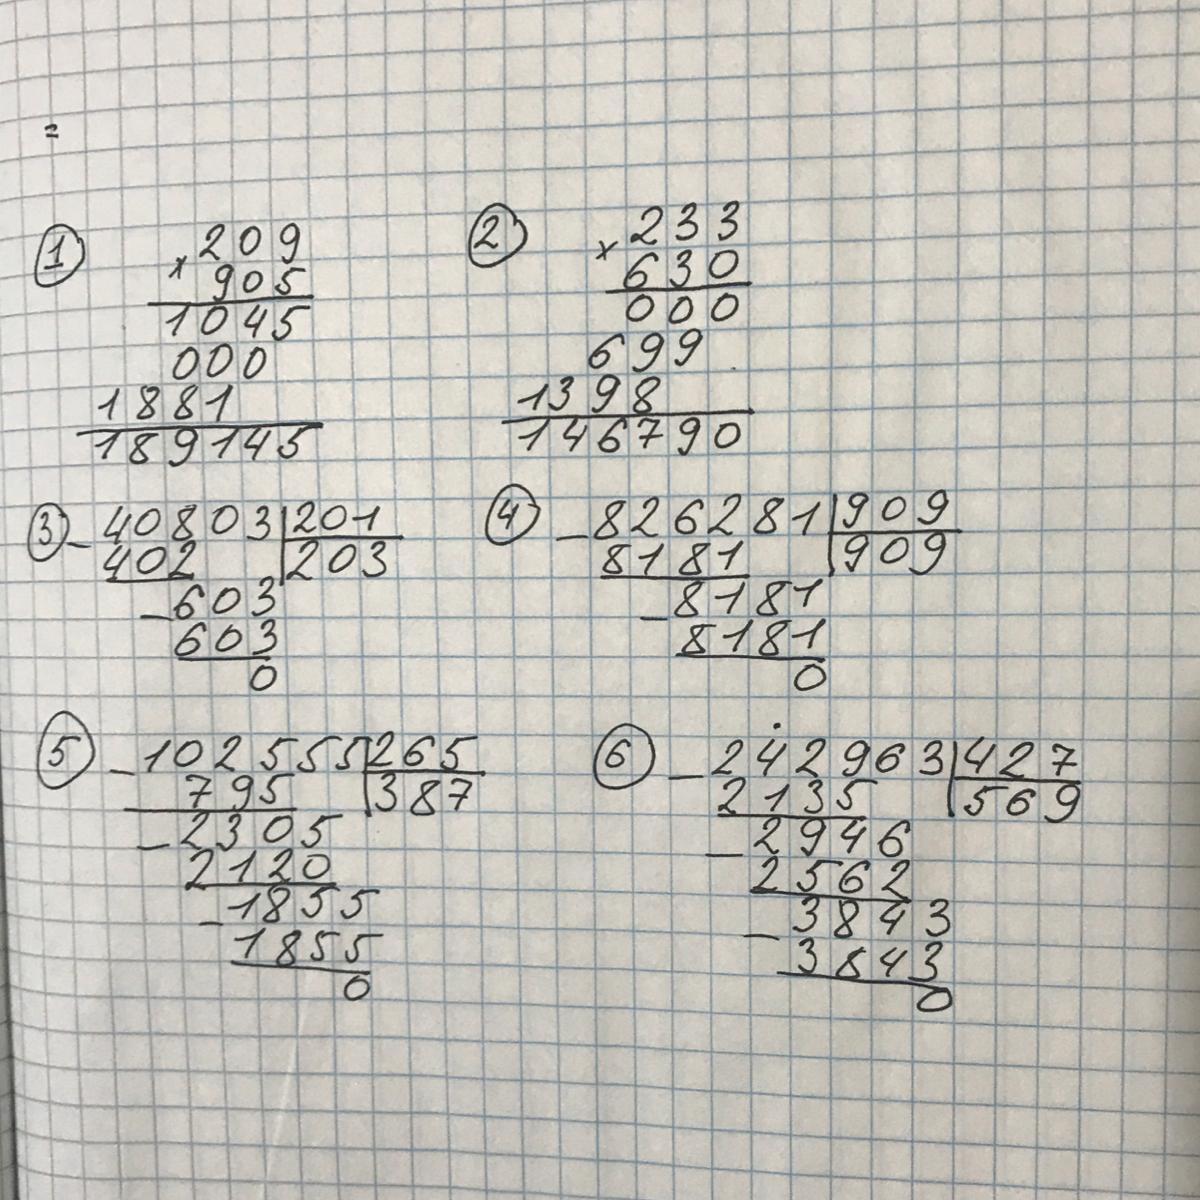 =
① 209
× 905
1045
000
1881
189145
② 233
× 630
000
699
1398
146790
③ - 40803 | 201
402 | 203
- 603
603
0
④ - 826281 | 909
8181 | 909
- 8181
8181
0
⑤ - 102555 | 265
795 | 387
- 2305
2120
- 1855
1855
0
⑥ - 242963 | 427
2135 | 569
- 2946
2562
- 3843
3843
0